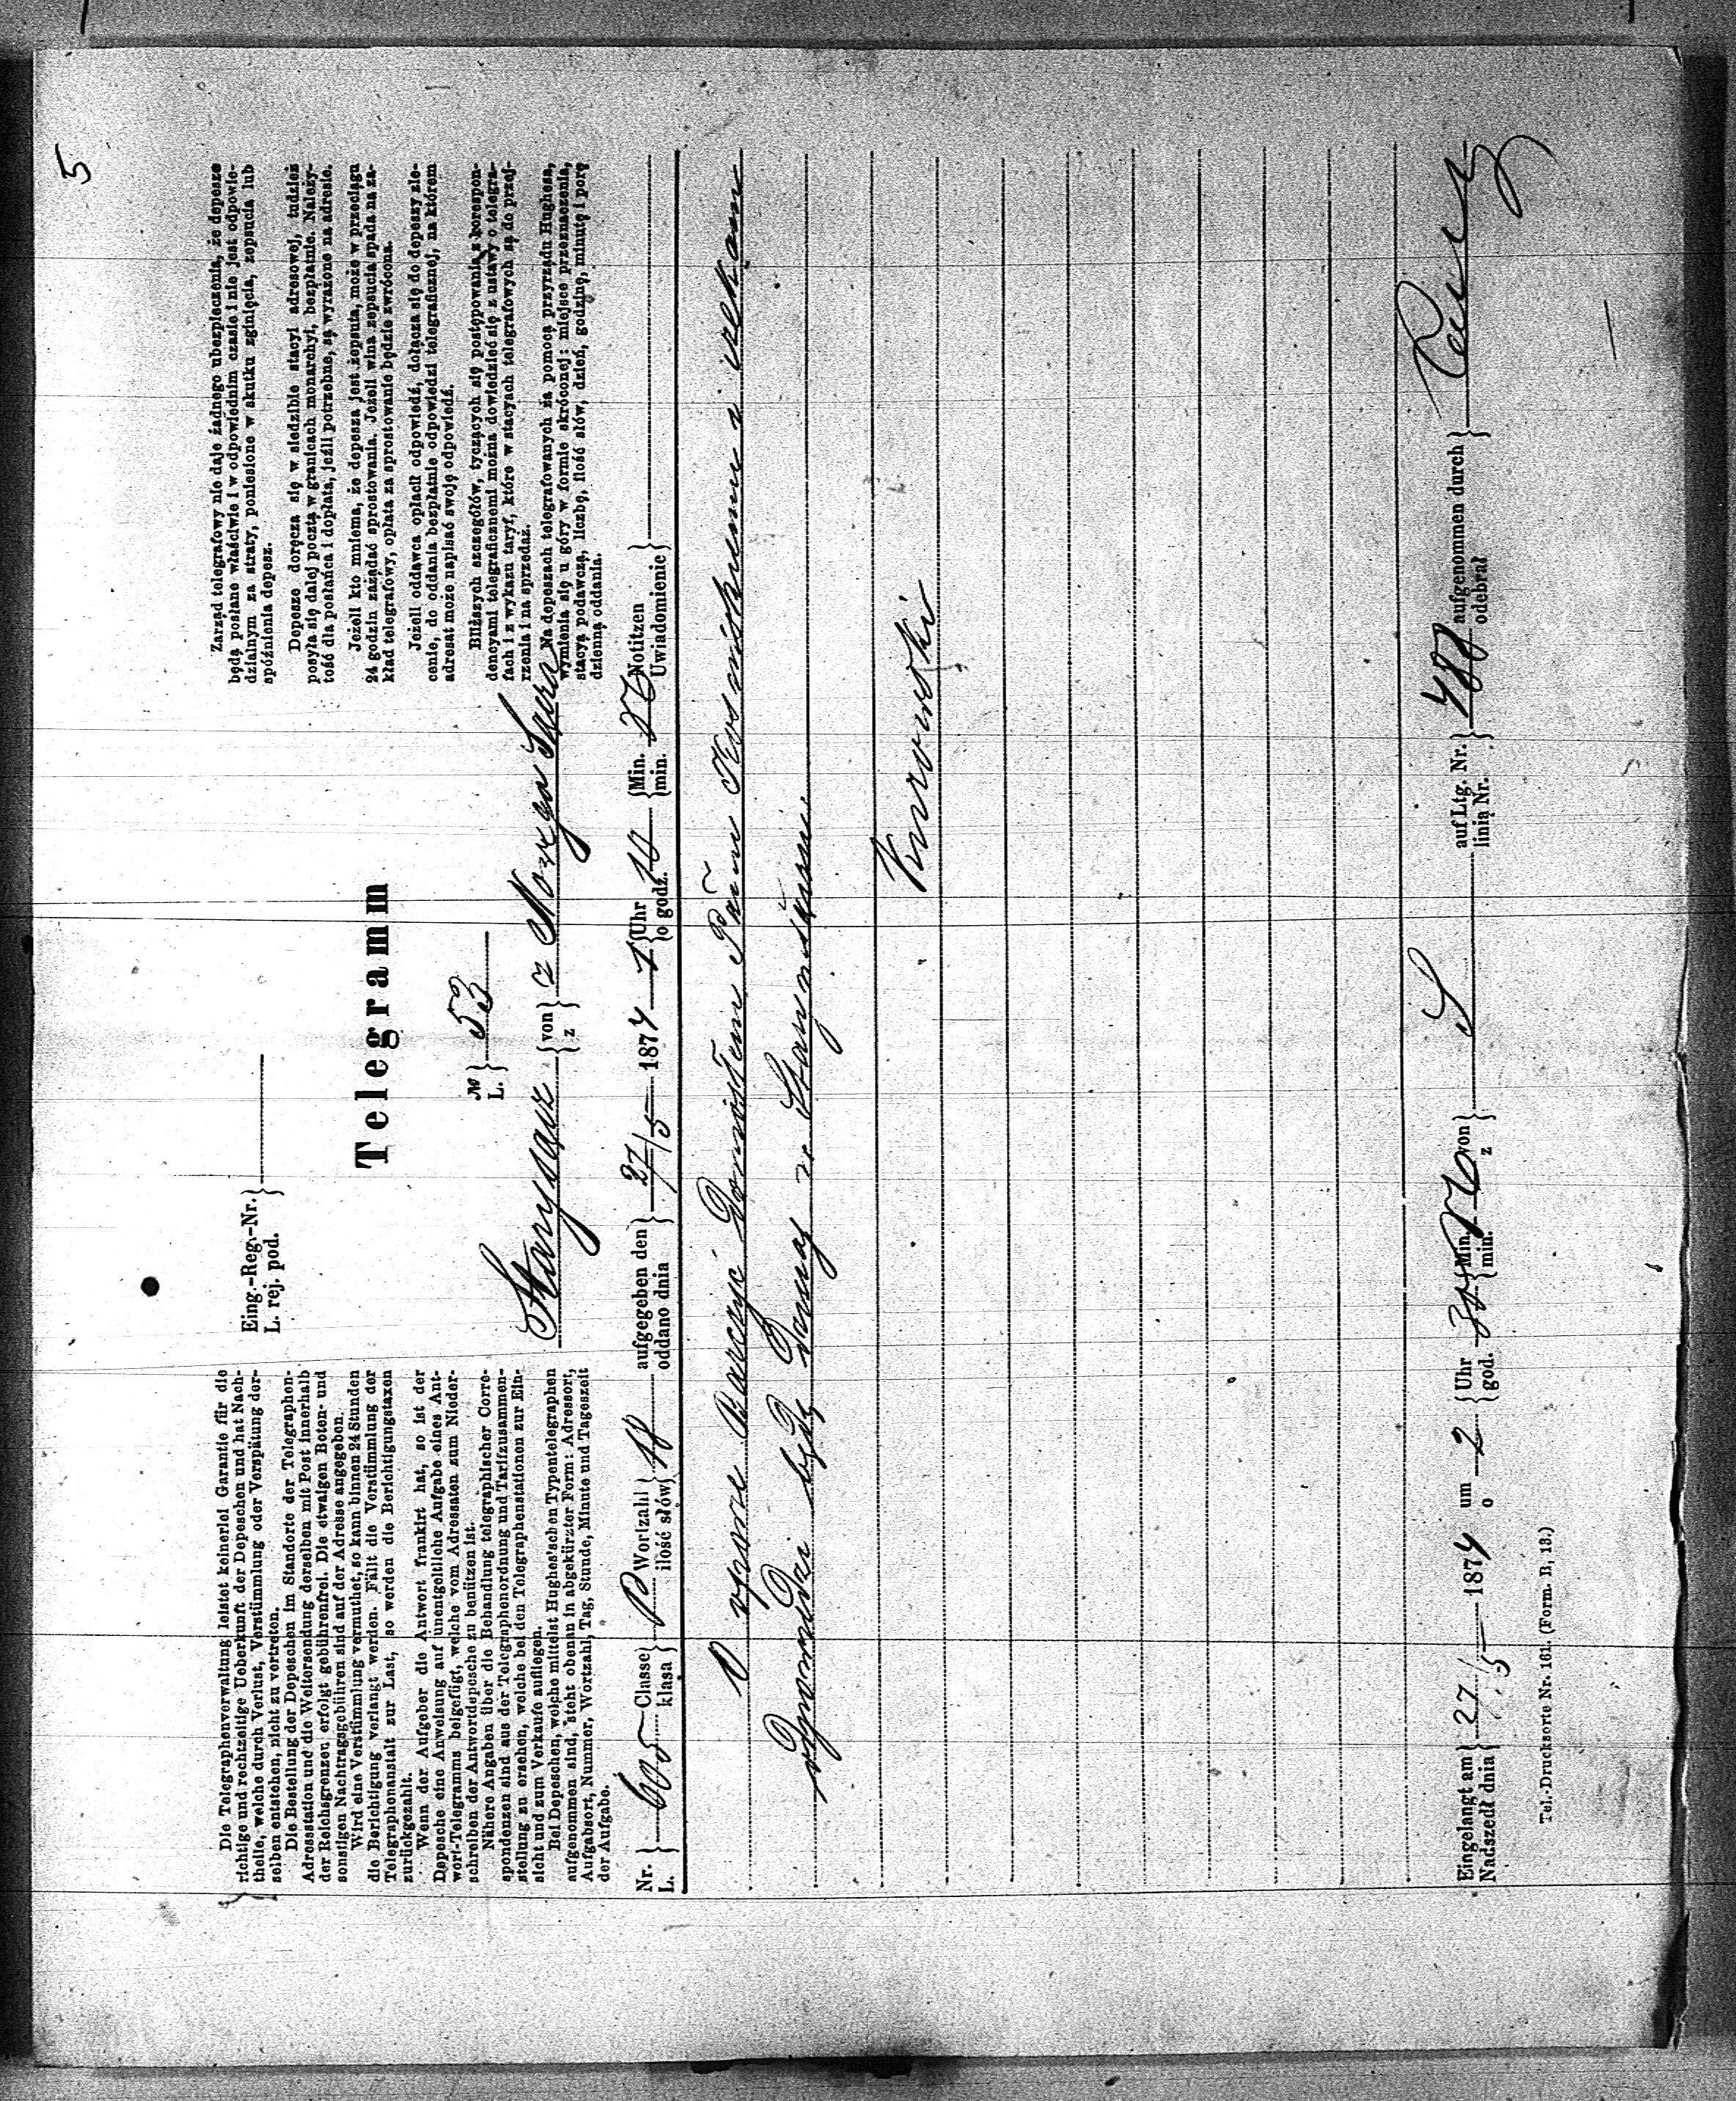 5
Eing.-Reg.-Nr.
L. rej. pod.
Telegramm
№ 53
L.
Die Telegraphenverwaltung leistet keinerlei Garantie für die
richtige und rechtzeitige Ueberkunft der Depeschen und hat Nach-
theile, welche durch Verlust, Verstümmlung oder Verspätung der-
selben entstehen, nicht zu vertreten.
Die Bestellung der Depeschen im Standorte der Telegraphen-
Adressstation und die Weitersendung derselben mit Post innerhalb
der Reichsgrenzen erfolgt gebührenfrei. Die etwaigen Boten- und
sonstigen Nachtragsgebühren sind auf der Adresse angegeben.
Wird eine Verstümmlung vermuthet, so kann binnen 24 Stunden
die Berichtigung verlangt werden. Fällt die Verstümmlung der
Telegraphenanstalt zur Last, so werden die Berichtigungstaxen
zurückgezahlt.
Wenn der Aufgeber die Antwort frankirt hat, so ist der
Depesche eine Anweisung auf unentgeltliche Aufgabe eines Ant-
wort-Telegramms beigefügt, welche vom Adressaten zum Nieder-
schreiben der Antwortdepesche zu benützen ist.
Nähere Angaben über die Behandlung telegraphischer Corre-
spondenzen sind aus der Telegraphenordnung und Tarifzusammen-
stellung zu ersehen, welche bei den Telegraphenstationen zur Ein-
sicht und zum Verkaufe aufliegen.
Bei Depeschen, welche mittelst Hughes'schen Typentelegraphen
aufgenommen sind, steht obenan in abgekürzter Form: Adressort,
Aufgabsort, Nummer, Wortzahl, Tag, Stunde, Minute und Tageszeit
der Aufgabe.
von
z
Zarząd telegrafowy nie daje żadnego ubezpieczenia, że depesze
będą posłane właściwie i w odpowiednim czasie i nie jest odpowie-
dzialnym za straty, poniesione w skutku zginięcia, zepsucia lub
spóźnienia depesz.
Depesze doręcza się w siedzibie stacyi adresowej, tudzież
posyła się dalej pocztą w granicach monarchyi, bezpłatnie. Należy-
tość dla posłańca i dopłata, jeźli potrzebne, są wyrażone na adresie.
Jeżeli kto mniema, że depesza jest zepsuta, może w przeciągu
24 godzin zażądać sprostowania. Jeżeli wina zepsucia spada na za-
kład telegrafowy, opłata za sprostowanie będzie zwrócona.
Jeżeli oddawca opłacił odpowiedź, dołącza się do depeszy zle-
cenie, do oddania bezpłatnie odpowiedzi telegraficznej, na którem
adresat może napisać swoję odpowiedź.
Bliższych szczegółów, tyczących się postępowania z korespon-
dencyami telegraficznemi można dowiedzieć się z ustawy o telegra-
fach i z wykazu taryf, które w stacyach telegrafowych są do przej-
rzenia i na sprzedaż.
Na depeszach telegrafowanych za pomocą przyrządu Hughesa,
wymienia się u góry w formie skróconej: miejsce przeznaczenia,
stacyą podawczą, liczbę, ilość słów, dzień, godzinę, minutę i porę
dzienną oddania.
Nr. 605 Classe Wortzahl 18 aufgegeben den 27/5 1874 Uhr Min. Notitzen
L. klasa ilość słów oddano dnia o godz. min. Uwiadomienie
Pani
będę w
Eingelangt am 27/5 1874 um 2 Uhr Min. von auf Ltg. Nr. 480 aufgenommen durch
Nadszedł dnia o god. min. z linią Nr. odebrał
Tel.-Drucksorte Nr. 161. (Form. B, 13.)